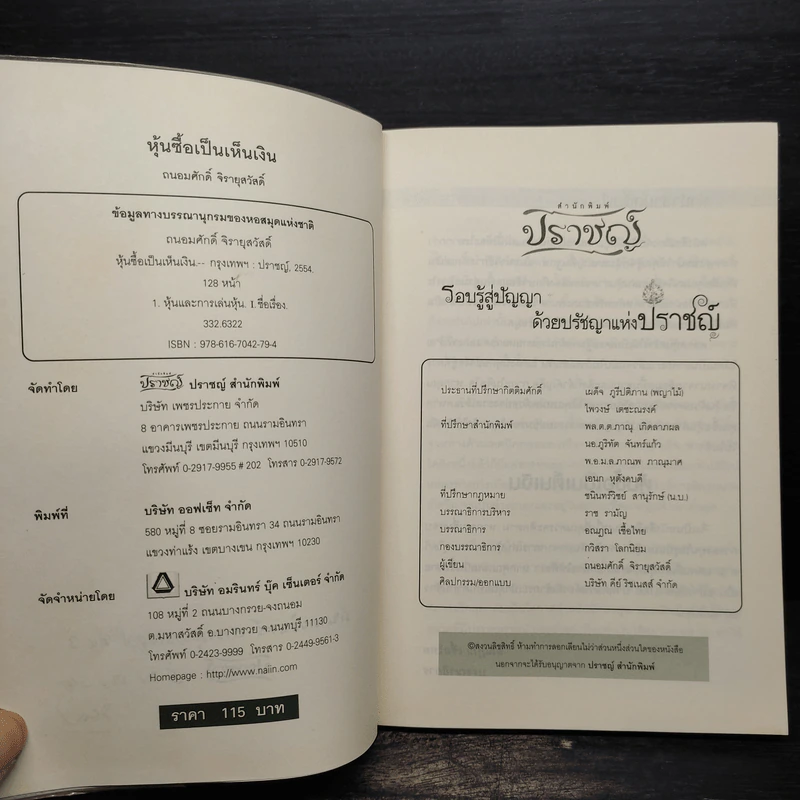 หุ้นซื้อเป็นเห็นเงิน
ถนอมศักดิ์ จิรายุสวัสดิ์
ข้อมูลทางบรรณานุกรมของหอสมุดแห่งชาติ
ถนอมศักดิ์ จิรายุสวัสดิ์
หุ้นซื้อเป็นเห็นเงิน.-- กรุงเทพฯ : ปราชญ์, 2554.
128 หน้า
1. หุ้นและการเล่นหุ้น. I.ชื่อเรื่อง.
332.6322
ISBN : 978-616-7042-79-4
จัดทำโดย สำนักพิมพ์ ปราชญ์ ปราชญ์ สำนักพิมพ์
บริษัท เพชรประกาย จำกัด
8 อาคารเพชรประกาย ถนนรามอินทรา
แขวงมีนบุรี เขตมีนบุรี กรุงเทพฯ 10510
โทรศัพท์ 0-2917-9955 # 202 โทรสาร 0-2917-9572
พิมพ์ที่ บริษัท ออฟเซ็ท จำกัด
580 หมู่ที่ 8 ซอยรามอินทรา 34 ถนนรามอินทรา
แขวงท่าแร้ง เขตบางเขน กรุงเทพฯ 10230
จัดจำหน่ายโดย บริษัท อมรินทร์ บุ๊ค เซ็นเตอร์ จำกัด
108 หมู่ที่ 2 ถนนบางกรวย-จงถนอม
ต.มหาสวัสดิ์ อ.บางกรวย จ.นนทบุรี 11130
โทรศัพท์ 0-2423-9999 โทรสาร 0-2449-9561-3
Homepage : http://www.naiin.com
ราคา 115 บาท
สำนักพิมพ์
ปราชญ์
รอบรู้สู่ปัญญา
ด้วยปรัชญาแห่งปราชญ์
ประธานที่ปรึกษากิตติมศักดิ์ เผด็จ ภูรีปติภาน (พญาไม้)
ไพวงษ์ เตชะณรงค์
ที่ปรึกษาสำนักพิมพ์ พล.ต.ต.ภาณุ เกิดลาภผล
นอ.ภูริทัต จันทร์แก้ว
พ.อ.ม.ล.ภาณพ ภาณุมาศ
เอนก หุตังคบดี
ที่ปรึกษากฎหมาย ชนินทร์วิชย์ สานุรักษ์ (น.บ.)
บรรณาธิการบริหาร ราช รามัญ
บรรณาธิการ อณภูณ เชื้อไทย
กองบรรณาธิการ กวิสรา โลกนิยม
ผู้เขียน ถนอมศักดิ์ จิรายุสวัสดิ์
ศิลปกรรม/ออกแบบ บริษัท คีย์ ริชเนสส์ จำกัด
©สงวนลิขสิทธิ์ ห้ามทำการลอกเลียนไม่ว่าส่วนหนึ่งส่วนใดของหนังสือ
นอกจากจะได้รับอนุญาตจาก ปราชญ์ สำนักพิมพ์